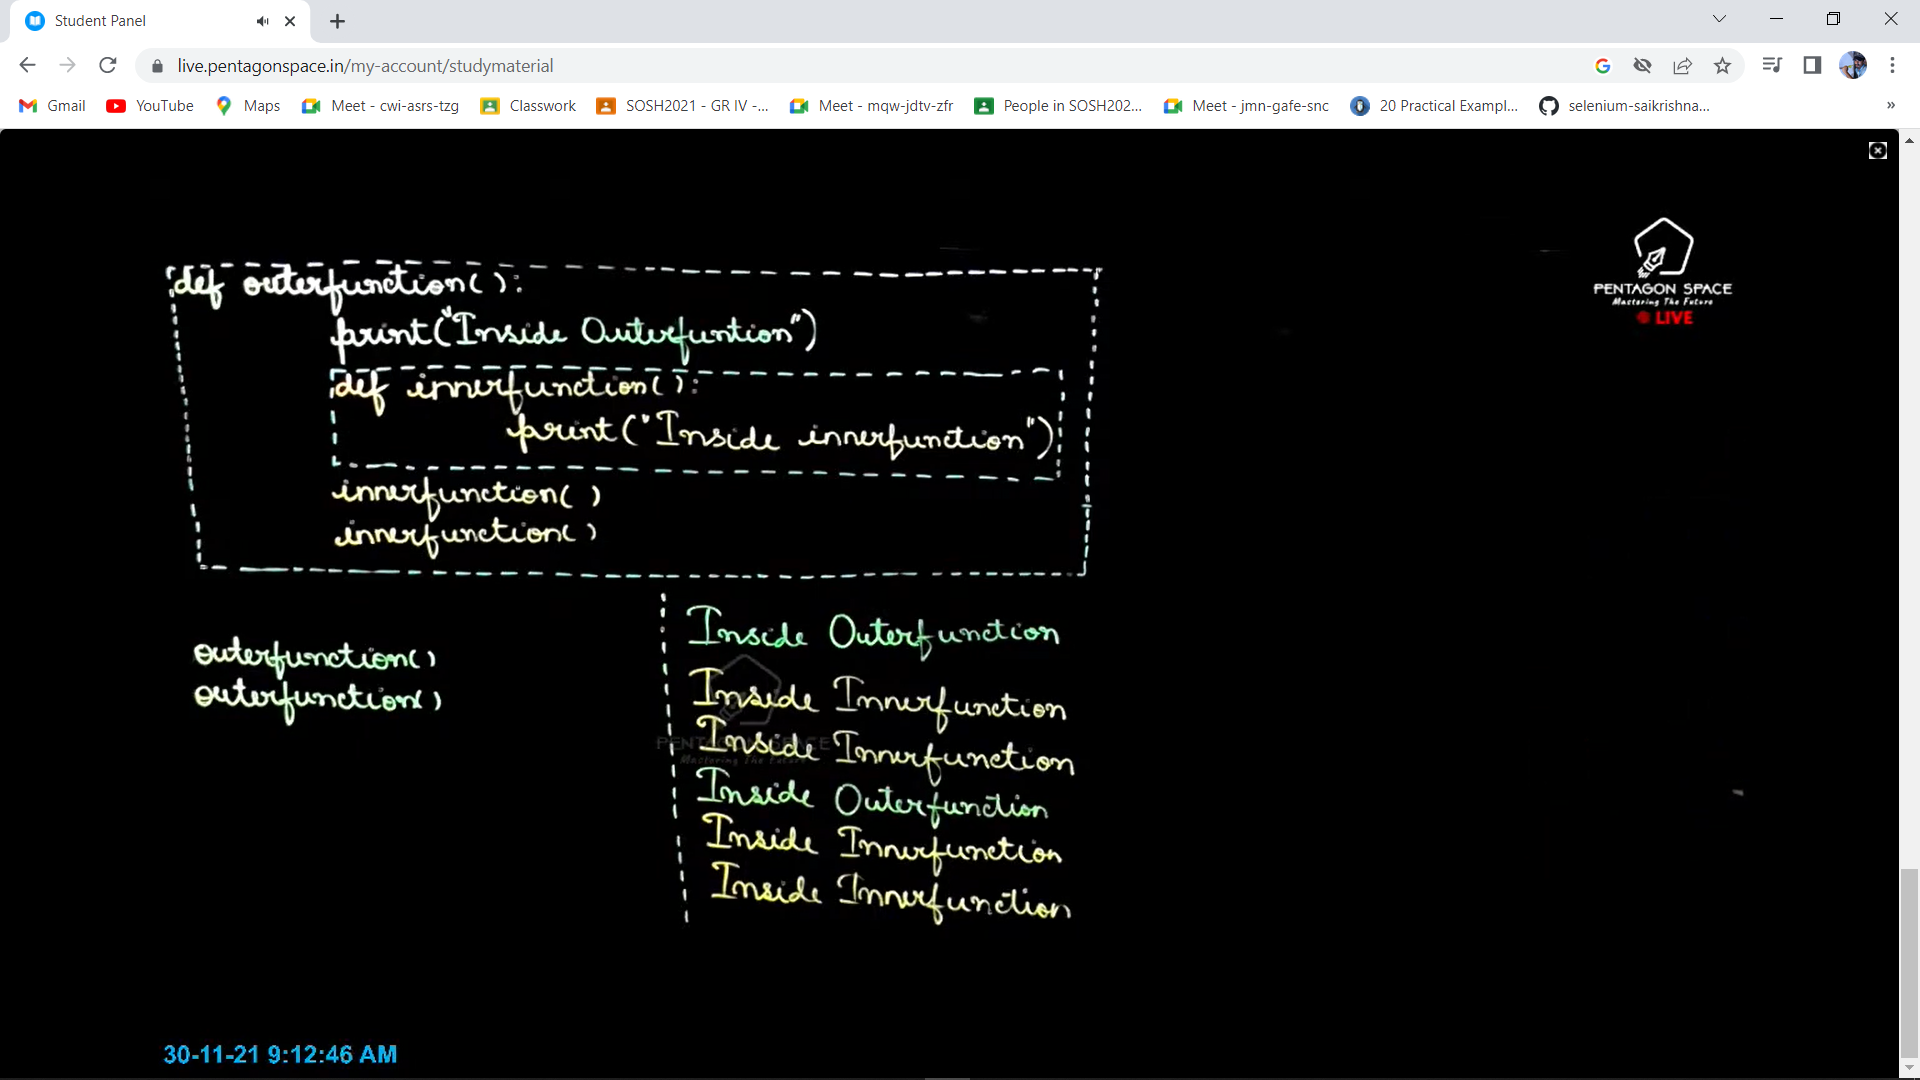 Student Panel
live.pentagonspace.in/my-account/studymaterial
Gmail YouTube Maps Meet - cwi-asrs-tzg Classwork SOSH2021 - GR IV -... Meet - mqw-jdtv-zfr People in SOSH202... Meet - jmn-gafe-snc 20 Practical Exampl... selenium-saikrishna... »
PENTAGON SPACE
Mastering The Future
LIVE
def outerfunction():
print("Inside Outerfuntion")
def innerfunction():
print("Inside innerfunction")
innerfunction()
innerfunction()
outerfunction()
outerfunction()
Inside Outerfunction
Inside Innerfunction
Inside Innerfunction
PENTAGON SPACE
Mastering The Future
Inside Outerfunction
Inside Innerfunction
Inside Innerfunction
30-11-21 9:12:46 AM